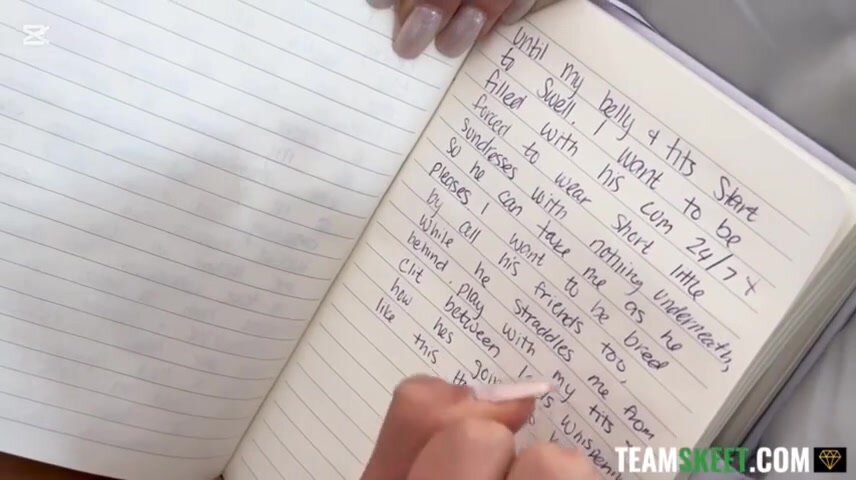 until my belly & tits Start
to Swell. I want to be
filled with his cum 24/7 &
forced to wear short little
sundresses with nothing underneath,
so he can take me as he
pleases I want to be bred
by all his friends too,
while he straddles me from
behind, play with my tits
clit between
how hes
like this
TEAMSKEET.COM